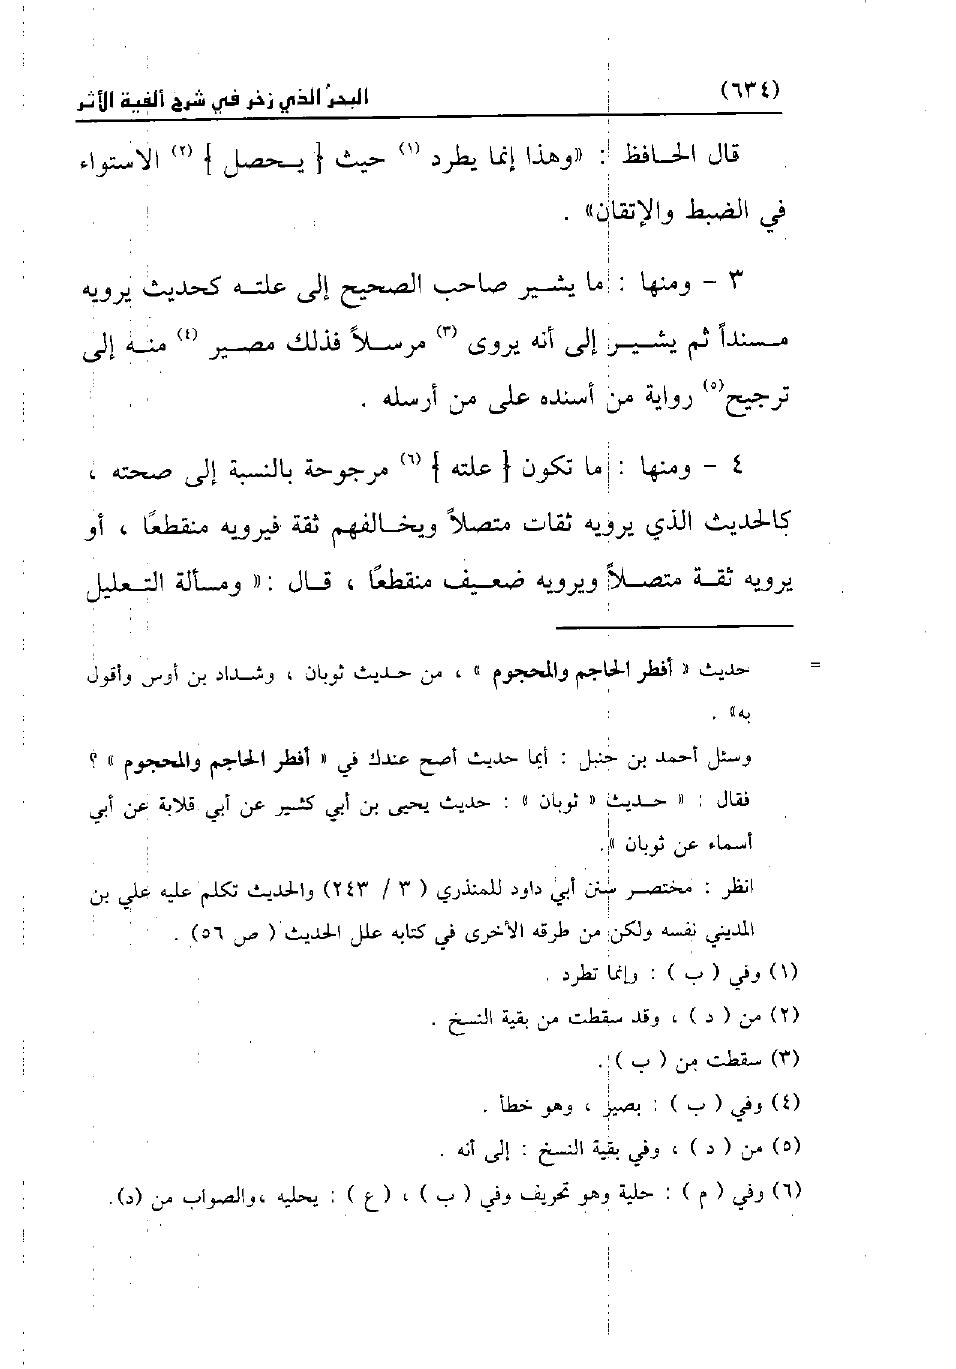 (٦٣٤) البحرُ الذي زخر في شرح ألفية الأثر
قال الحافظ : «وهذا إنما يطرد (١) حيث { يحصل } (٢) الاستواء
في الضبط والإتقان» .
٣ - ومنها : ما يشير صاحب الصحيح إلى علته كحديث يرويه
مسنداً ثم يشير إلى أنه يروى (٣) مرسلاً فذلك مصير (٤) منه إلى
ترجيح(٥) رواية من أسنده على من أرسله .
٤ - ومنها : ما تكون { علته } (٦) مرجوحة بالنسبة إلى صحته ،
كالحديث الذي يرويه ثقات متصلاً ويخالفهم ثقة فيرويه منقطعًا ، أو
يرويه ثقة متصلاً ويرويه ضعيف منقطعًا ، قال : « ومسألة التعليل
= حديث « أفطر الحاجم والمحجوم » ، من حديث ثوبان ، وشداد بن أوس وأقول
به» .
وسئل أحمد بن حنبل : أيما حديث أصح عندك في « أفطر الحاجم والمحجوم » ؟
فقال : « حديث « ثوبان » : حديث يحيى بن أبي كثير عن أبي قلابة عن أبي
أسماء عن ثوبان ».
انظر : مختصر سنن أبي داود للمنذري ( ٣ / ٢٤٣) والحديث تكلم عليه علي بن
المديني نفسه ولكن من طرقه الأخرى في كتابه علل الحديث ( ص ٥٦) .
(١) وفي ( ب ) : وإنما تطرد .
(٢) من ( د ) ، وقد سقطت من بقية النسخ .
(٣) سقطت من ( ب ) .
(٤) وفي ( ب ) : بصير ، وهو خطأ .
(٥) من ( د ) ، وفي بقية النسخ : إلى أنه .
(٦) وفي ( م ) : حلية وهو تحريف وفي ( ب ) ، ( ع ) : يحليه ،والصواب من (د).